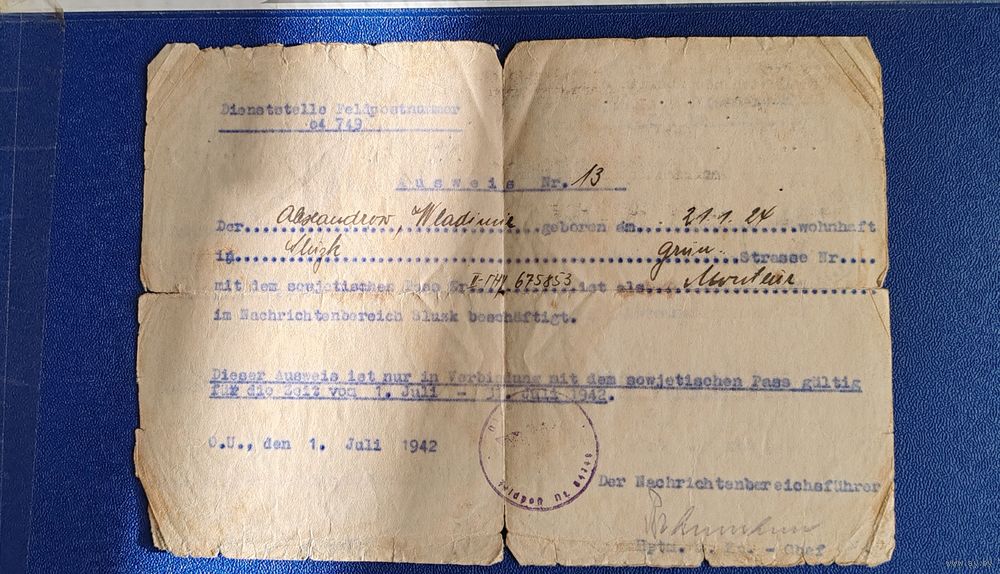 Dienststelle Feldpostnummer
o4 749
Ausweis Nr. 13
Der Alexandrow, Wladimir geboren am 21.1.24 wohnhaft
in Sluzk Grün. Strasse Nr.
mit dem sowjetischen Pass Nr. 675853 ist als Monteur
im Nachrichtenbereich Sluzk beschäftigt.
Dieser Ausweis ist nur in Verbindung mit dem sowjetischen Pass gültig
für die Zeit vom 1. Juli - 31. Juli 1942.
O.U., den 1. Juli 1942
Der Nachrichtenbereichsführer
Hptm. - Chef